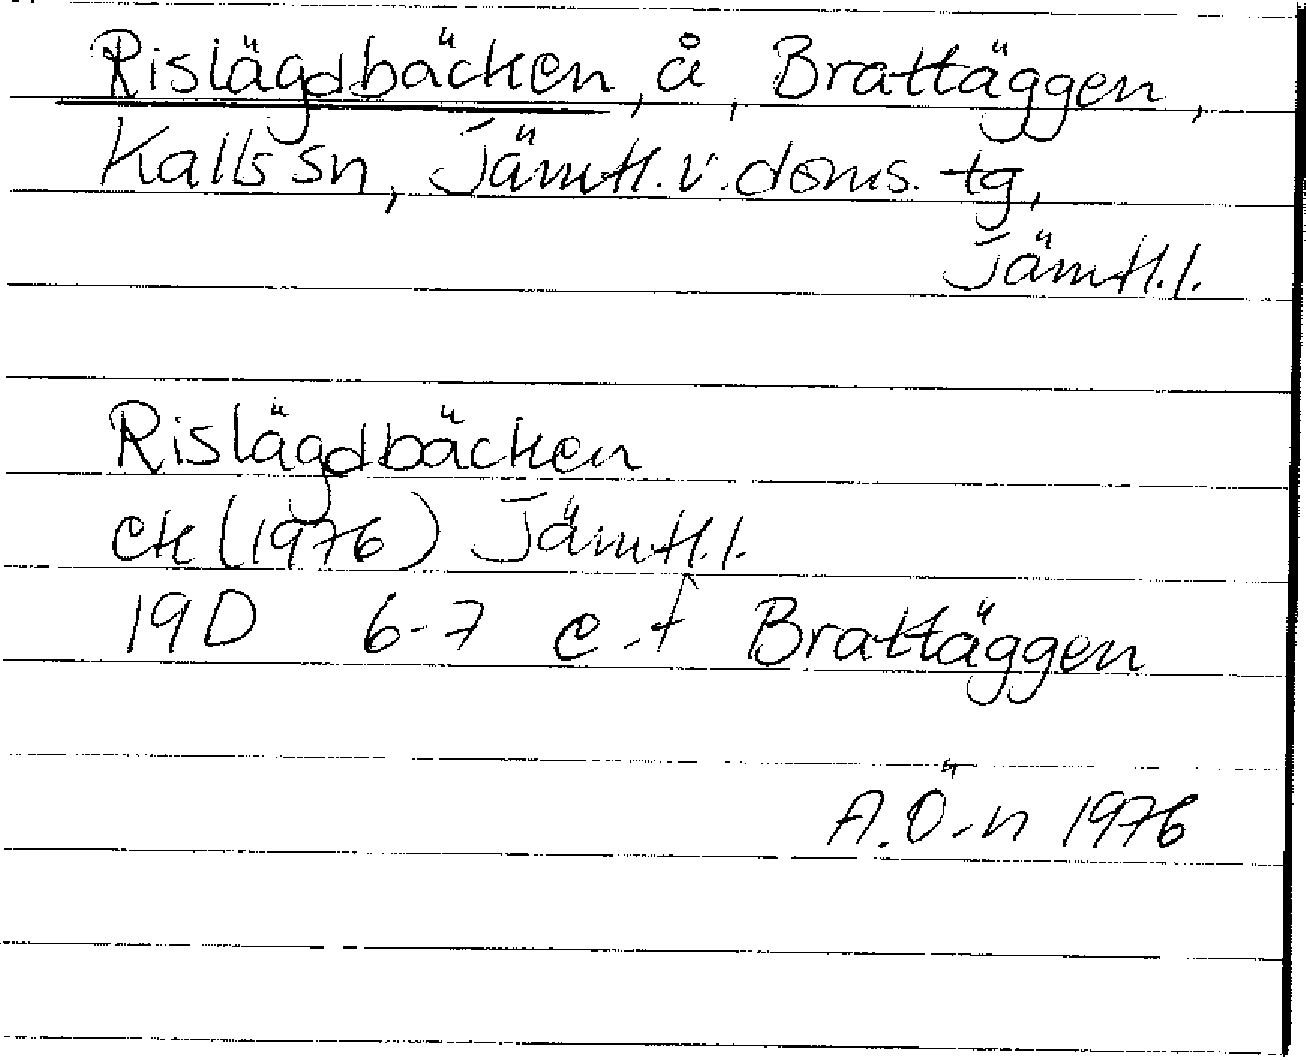 Rislägdbäcken, å, Brattäggen,
Kalls sn, Jämtl. v. doms. tg,
Jämtl. l.
Rislägdbäcken
ek (1976) Jämtl. l.
19D 6-7 e-f Brattäggen
A. Ö-n 1976